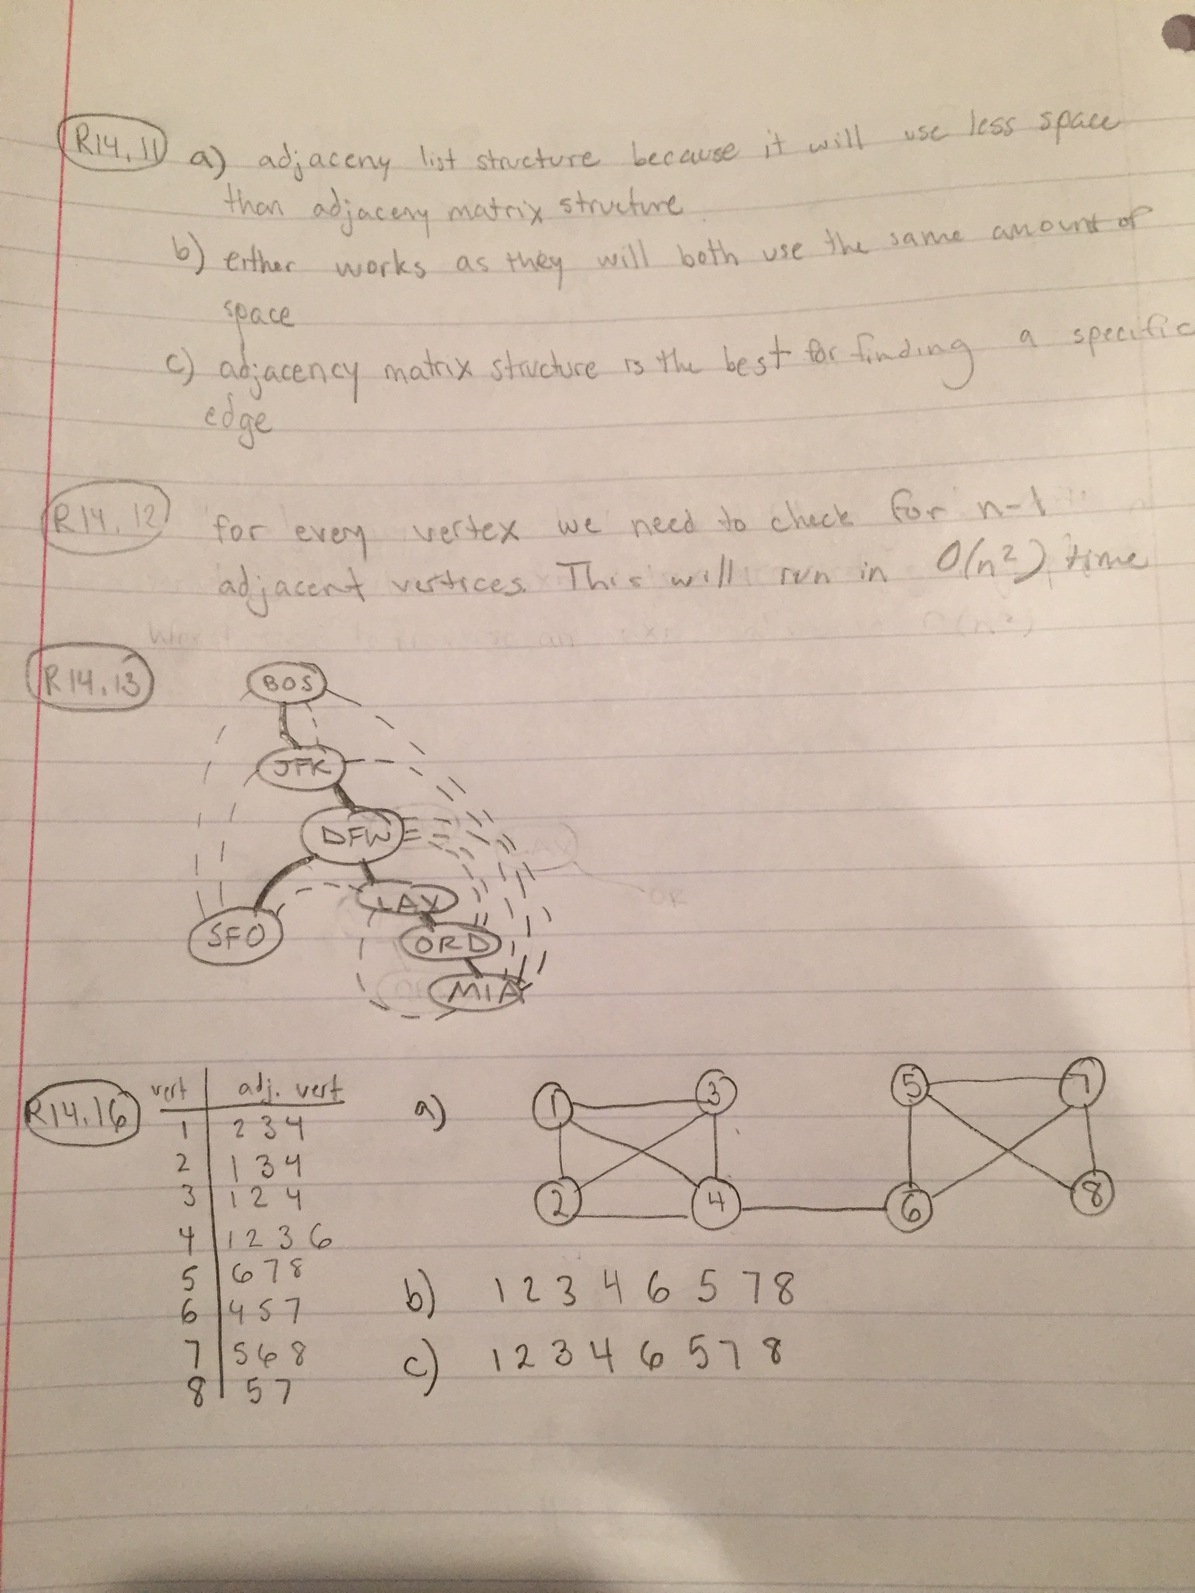 R14.11 a) adjaceny list structure because it will use less space
than adjaceny matrix structure.
b) either works as they will both use the same amount of
space
c) adjacency matrix structure is the best for finding a specific
edge
R14.12 for every vertex we need to check for n-1
adjacent vertices. This will run in O(n²) time
R14.13
BOS
JFK
DFW
LAX
SFO
ORD
MIA
R14.16
vert adj. vert
1 2 3 4
2 1 3 4
3 1 2 4
4 1 2 3 6
5 6 7 8
6 4 5 7
7 5 6 8
8 5 7
a)
1 3 5 7
2 4 6 8
b) 1 2 3 4 6 5 7 8
c) 1 2 3 4 6 5 7 8